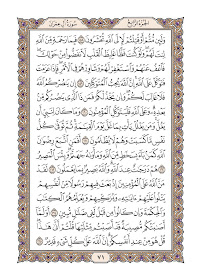 الجزء الرابع سورة آل عمران
وَلَئِن مُّتُّمْ أَوْ قُتِلْتُمْ لَإِلَى ٱللَّهِ تُحْشَرُونَ ١٥٨ فَبِمَا رَحْمَةٍ مِّنَ ٱللَّهِ
لِنتَ لَهُمْ وَلَوْ كُنتَ فَظًّا غَلِيظَ ٱلْقَلْبِ لَٱنفَضُّوا۟ مِنْ حَوْلِكَ
فَٱعْفُ عَنْهُمْ وَٱسْتَغْفِرْ لَهُمْ وَشَاوِرْهُمْ فِى ٱلْأَمْرِ فَإِذَا عَزَمْتَ
فَتَوَكَّلْ عَلَى ٱللَّهِ إِنَّ ٱللَّهَ يُحِبُّ ٱلْمُتَوَكِّلِينَ ١٥٩ إِن يَنصُرْكُمُ ٱللَّهُ
فَلَا غَالِبَ لَكُمْ وَإِن يَخْذُلْكُمْ فَمَن ذَا ٱلَّذِى يَنصُرُكُم مِّنۢ
بَعْدِهِۦ وَعَلَى ٱللَّهِ فَلْيَتَوَكَّلِ ٱلْمُؤْمِنُونَ ١٦٠ وَمَا كَانَ لِنَبِىٍّ أَن
يَغُلَّ وَمَن يَغْلُلْ يَأْتِ بِمَا غَلَّ يَوْمَ ٱلْقِيَـٰمَةِ ثُمَّ تُوَفَّىٰ كُلُّ
نَفْسٍ مَّا كَسَبَتْ وَهُمْ لَا يُظْلَمُونَ ١٦١ أَفَمَنِ ٱتَّبَعَ رِضْوَٰنَ
ٱللَّهِ كَمَنۢ بَآءَ بِسَخَطٍ مِّنَ ٱللَّهِ وَمَأْوَىٰهُ جَهَنَّمُ وَبِئْسَ ٱلْمَصِيرُ
١٦٢ هُمْ دَرَجَـٰتٌ عِندَ ٱللَّهِ وَٱللَّهُ بَصِيرٌۢ بِمَا يَعْمَلُونَ ١٦٣ لَقَدْ
مَنَّ ٱللَّهُ عَلَى ٱلْمُؤْمِنِينَ إِذْ بَعَثَ فِيهِمْ رَسُولًا مِّنْ أَنفُسِهِمْ
يَتْلُوا۟ عَلَيْهِمْ ءَايَـٰتِهِۦ وَيُزَكِّيهِمْ وَيُعَلِّمُهُمُ ٱلْكِتَـٰبَ
وَٱلْحِكْمَةَ وَإِن كَانُوا۟ مِن قَبْلُ لَفِى ضَلَـٰلٍ مُّبِينٍ ١٦٤ أَوَلَمَّآ
أَصَـٰبَتْكُم مُّصِيبَةٌ قَدْ أَصَبْتُم مِّثْلَيْهَا قُلْتُمْ أَنَّىٰ هَـٰذَا
قُلْ هُوَ مِنْ عِندِ أَنفُسِكُمْ إِنَّ ٱللَّهَ عَلَىٰ كُلِّ شَىْءٍ قَدِيرٌ ١٦٥
٧١